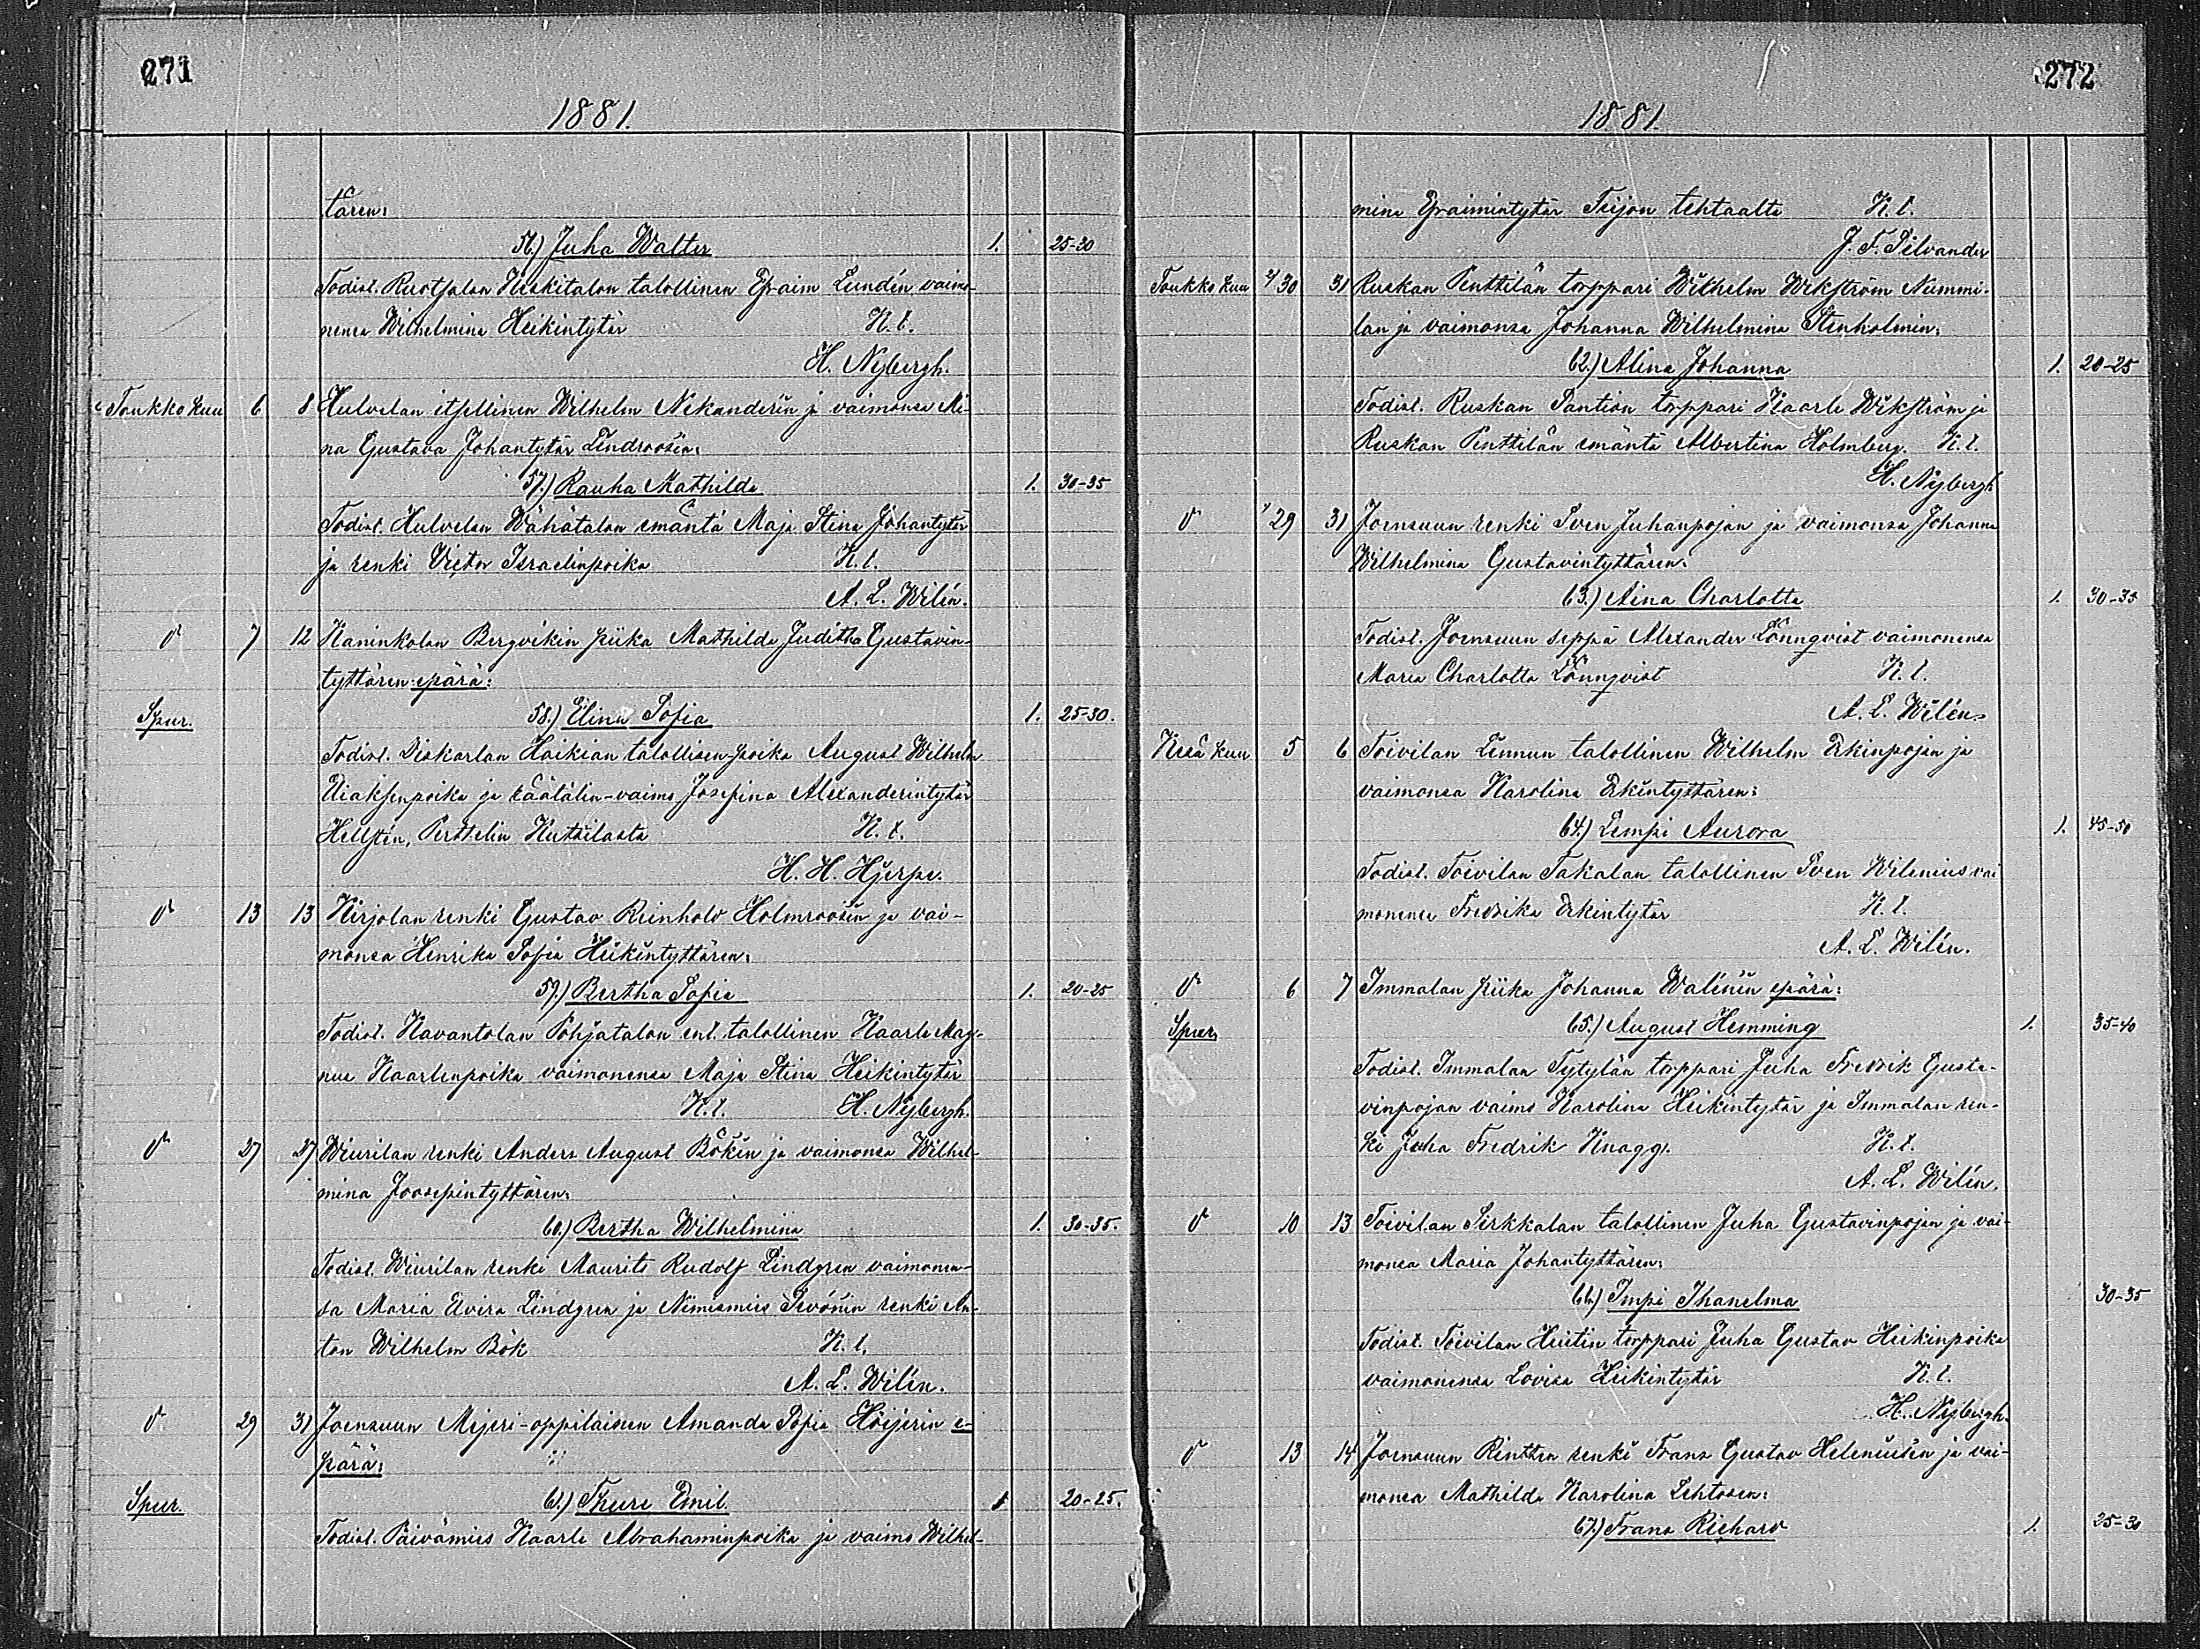 271
1881.
tären:
56.) Juha Walter 1. 25-30
Todist. Ruotsalan Heikitalon talollinen Efraim Lundén vaimo-
nensa Wilhelmina Heikintytär K. t.
H. Nybergh.
Toukko kuu 6 8 Hulvelan itsellinen Wilhelm Nekanderin ja vaimonsa Mi-
na Gustava Johantytär Lindroosin:
57.) Rauha Mathilda 1. 30-35
Todist. Hulvelan Wähätalon emäntä Maja Stina Johantytär
ja renki Victor Israelinpoika K. t.
A. L. Wilén.
" 7 12 Kaninkolan Bergvikin piika Mathilda Juditha Gustavin-
tyttären epärä:
Spur. 58.) Elina Sofia 1. 25-30.
Todist. Diskarlan Haikian talollisen-poika August Wilhelm
Eliaksenpoika ja räätälin-vaimo Josefina Alexanderintytär
Hellstén, Perttelin Kuttilasta K. t.
H. H. Hjerpe.
" 13 13 Kirjolan renki Gustav Reinhold Holmroosin ja vai-
monsa Henrika Sofia Heikintyttären:
59.) Bertha Sofia 1. 20-25
Todist. Kavantolan Pohjatalon ent. talollinen Kaarle Mag-
nus Kaarlenpoika vaimonensa Maja Stina Heikintytär
K. t. H. Nybergh.
" 27 27 Wiurilan renki Anders August Bökin ja vaimonsa Wilhel-
mina Joosepintyttären:
60.) Bertha Wilhelmina 1. 30-35.
Todist. Wiurilan renki Maurits Rudolf Lindgren vaimonen-
sa Maria Elvira Lindgren ja Nimismies Sevónin renki An-
ton Wilhelm Bök K. t.
A. L. Wilén.
" 29 31 Joensuun Mejeri-oppilaisen Amanda Sofia Höijerin e-
pärä:
Spur. 61.) Thure Emil 1 20-25.
Todist. Päivämies Kaarle Abrahaminpoika ja vaimo Wilhel-
272
1881.
mina Efraimintytär Teijon tehtaalta K. t.
J. F. Silvander
Toukko kuu 30 31 Ruskan Penttilän torppari Wilhelm Wikström Nummi-
lan ja vaimonsa Johanna Wilhelmina Stenholmin:
62.) Alina Johanna 1. 20-25
Todist. Ruskan Pantion torppari Kaarle Wikström ja
Ruskan Penttilän emäntä Albertina Holmberg. K. t.
H. Nybergh
" 29 31 Joensuun renki Sven Juhanpojan ja vaimonsa Johanna
Wilhelmina Gustavintyttären:
63.) Aina Charlotta 1. 30-35
Todist. Joensuun seppä Alexander Lönnqvist vaimonensa
Maria Charlotta Lönnqvist K. t.
A. L. Wilén.
Kesä kuu 5 6 Toivilan Lennun talollinen Wilhelm Erkinpojan ja
vaimonsa Karolina Erkintyttären:
64.) Lempi Aurora 1. 45-50
Todist. Toivilan Takalan talollinen Sven Wilenius vai
monensa Fredrika Erkintytär K. t.
A. L. Wilén.
" 6 7 Immalan piika Johanna Walinin epärä:
Spur. 65.) August Hemming 1. 35-40
Todist. Immalan Tytylän torppari Juha Fredrik Gusta-
vinpojan vaimo Karolina Heikintytär ja Immalan ren-
ki Juha Fredrik Knagg. K. t.
A. L. Wilén.
" 10 13 Toivilan Sirkkalan talollinen Juha Gustavinpojan ja vai-
monsa Maria Johantyttären:
66.) Impi Ihanelma 30-35
Todist. Toivilan Heitin torppari Juha Gustav Heikinpoika
vaimonensa Lovisa Heikintytär K. t.
H. Nybergh.
" 13 14 Joensuun Rinttan renki Frans Gustav Heleniusén ja vai-
monsa Mathilda Karolina Lehtosen:
67.) Frans Richard 1. 25-30